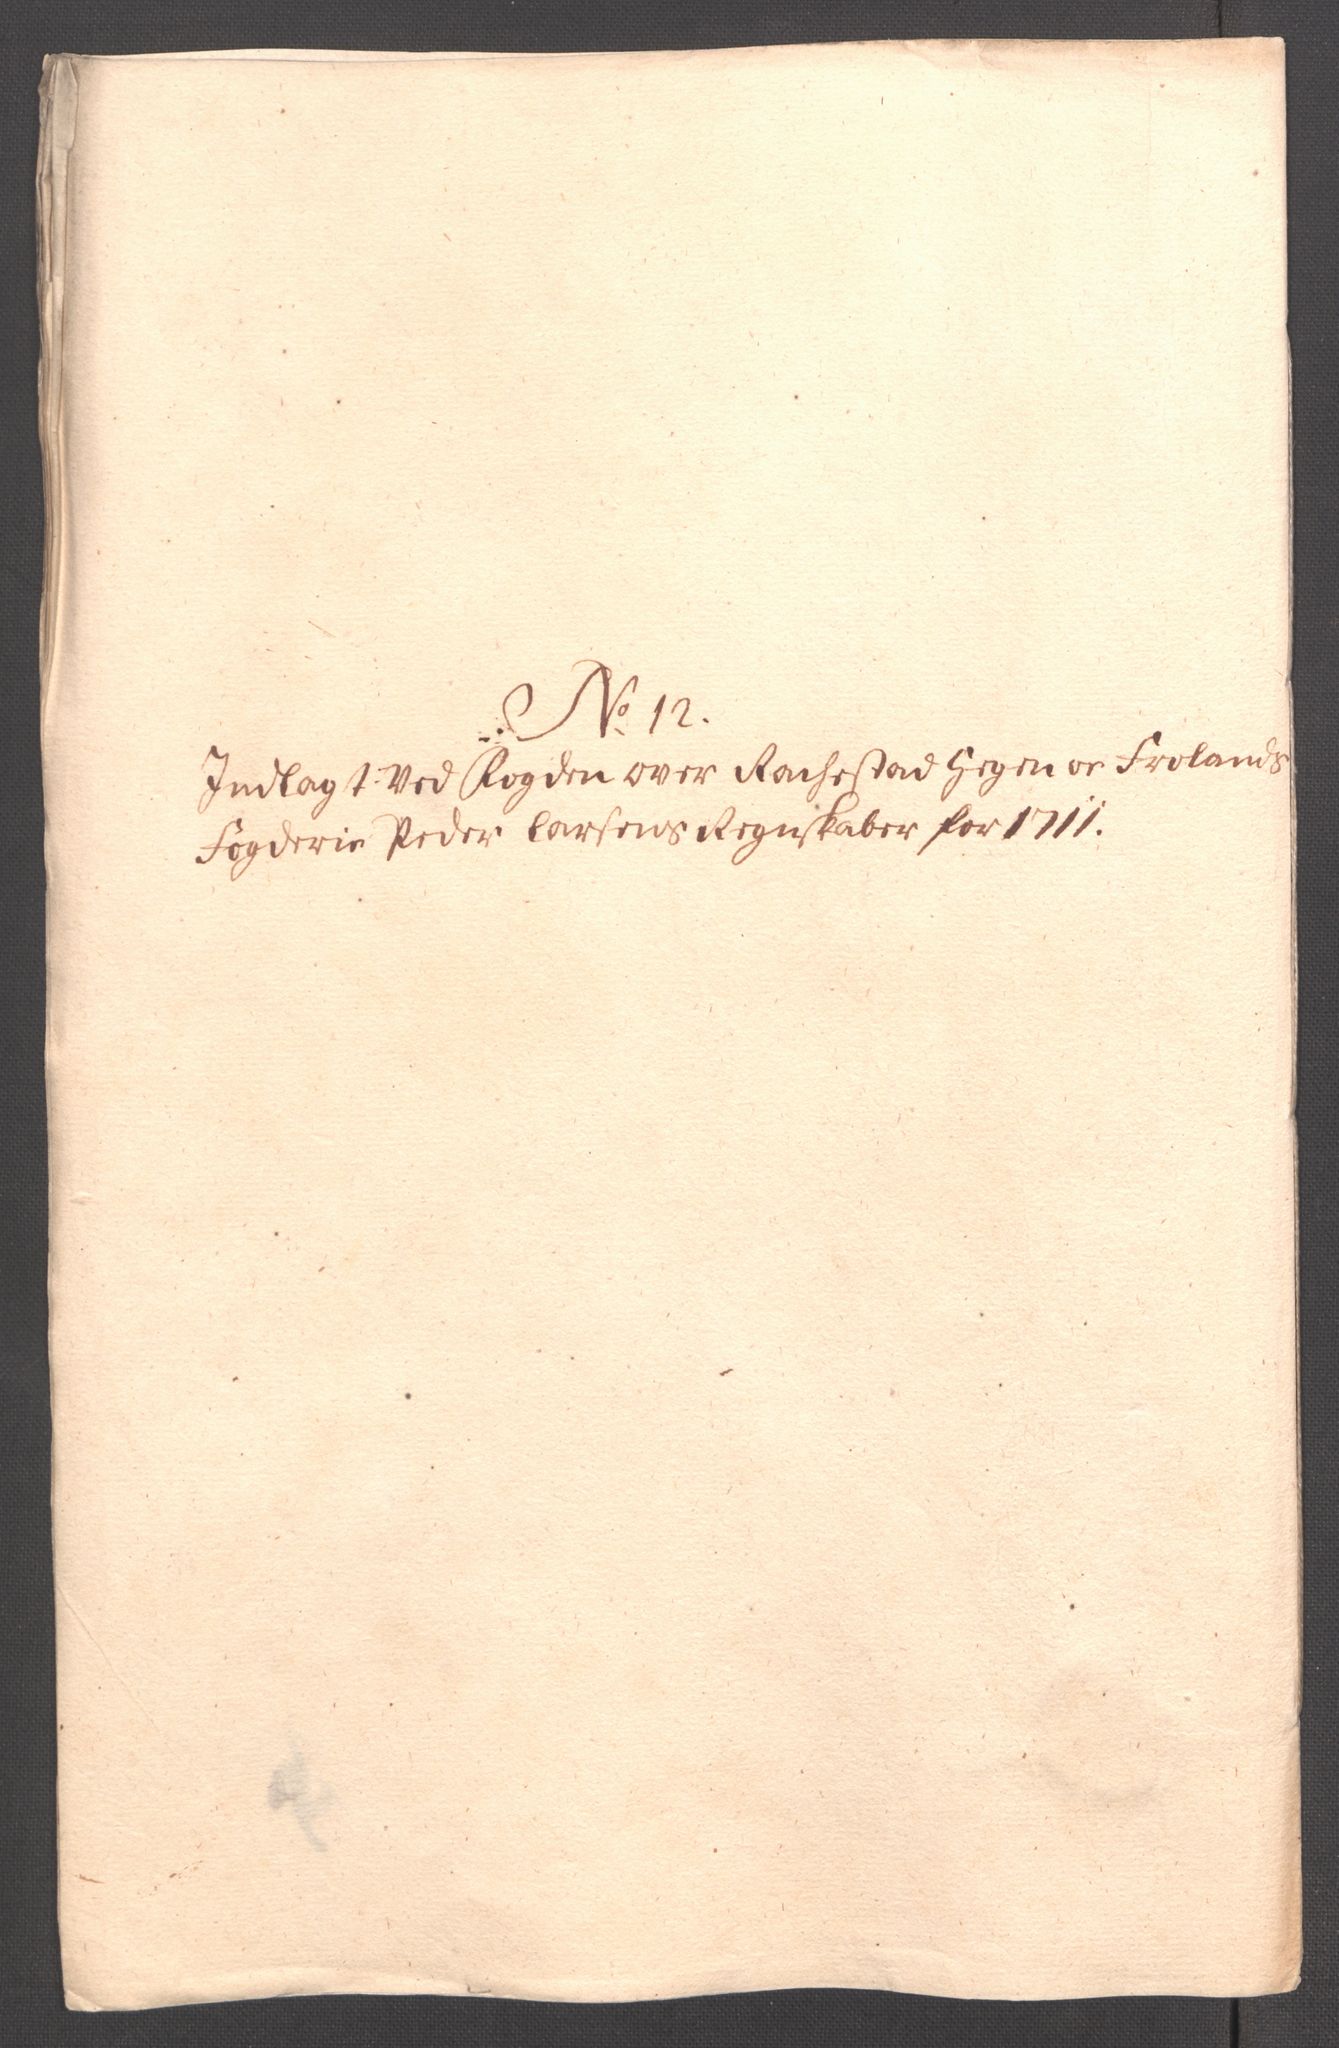 No 12.
Indlagt Ved Fogden over Rachestad Hegen oc Frolands
Fogderie Peder Larsens Regnskaber for 1711.